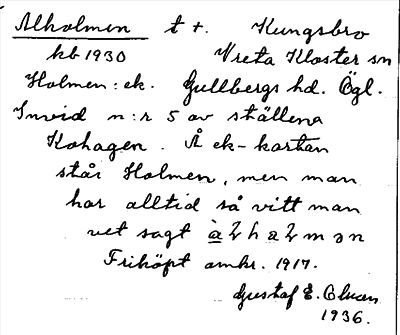 Alholmen t +. Kungsbro
kb 1930 Vreta Kloster sn
Holmen: ek. Gullbergs hd. Ögl.
Invid n:r 5 av ställena
Kohagen. Å ek-kartan
står Holmen, men man
har alltid så vitt man
vet sagt
Friköpt omkr. 1917.
Gustaf E.
1936.